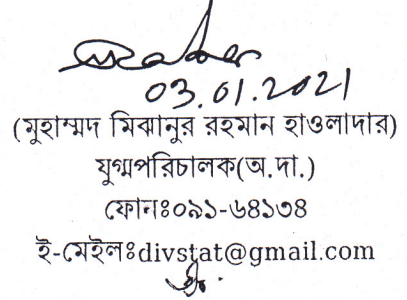 03.01.2021
(মুহাম্মদ মিঝানুর রহমান হাওলাদার)
যুগ্মপরিচালক(অ.দা.)
ফোনঃ০৯১-৬৪১৩৪
ই-মেইলঃdivstat@gmail.com